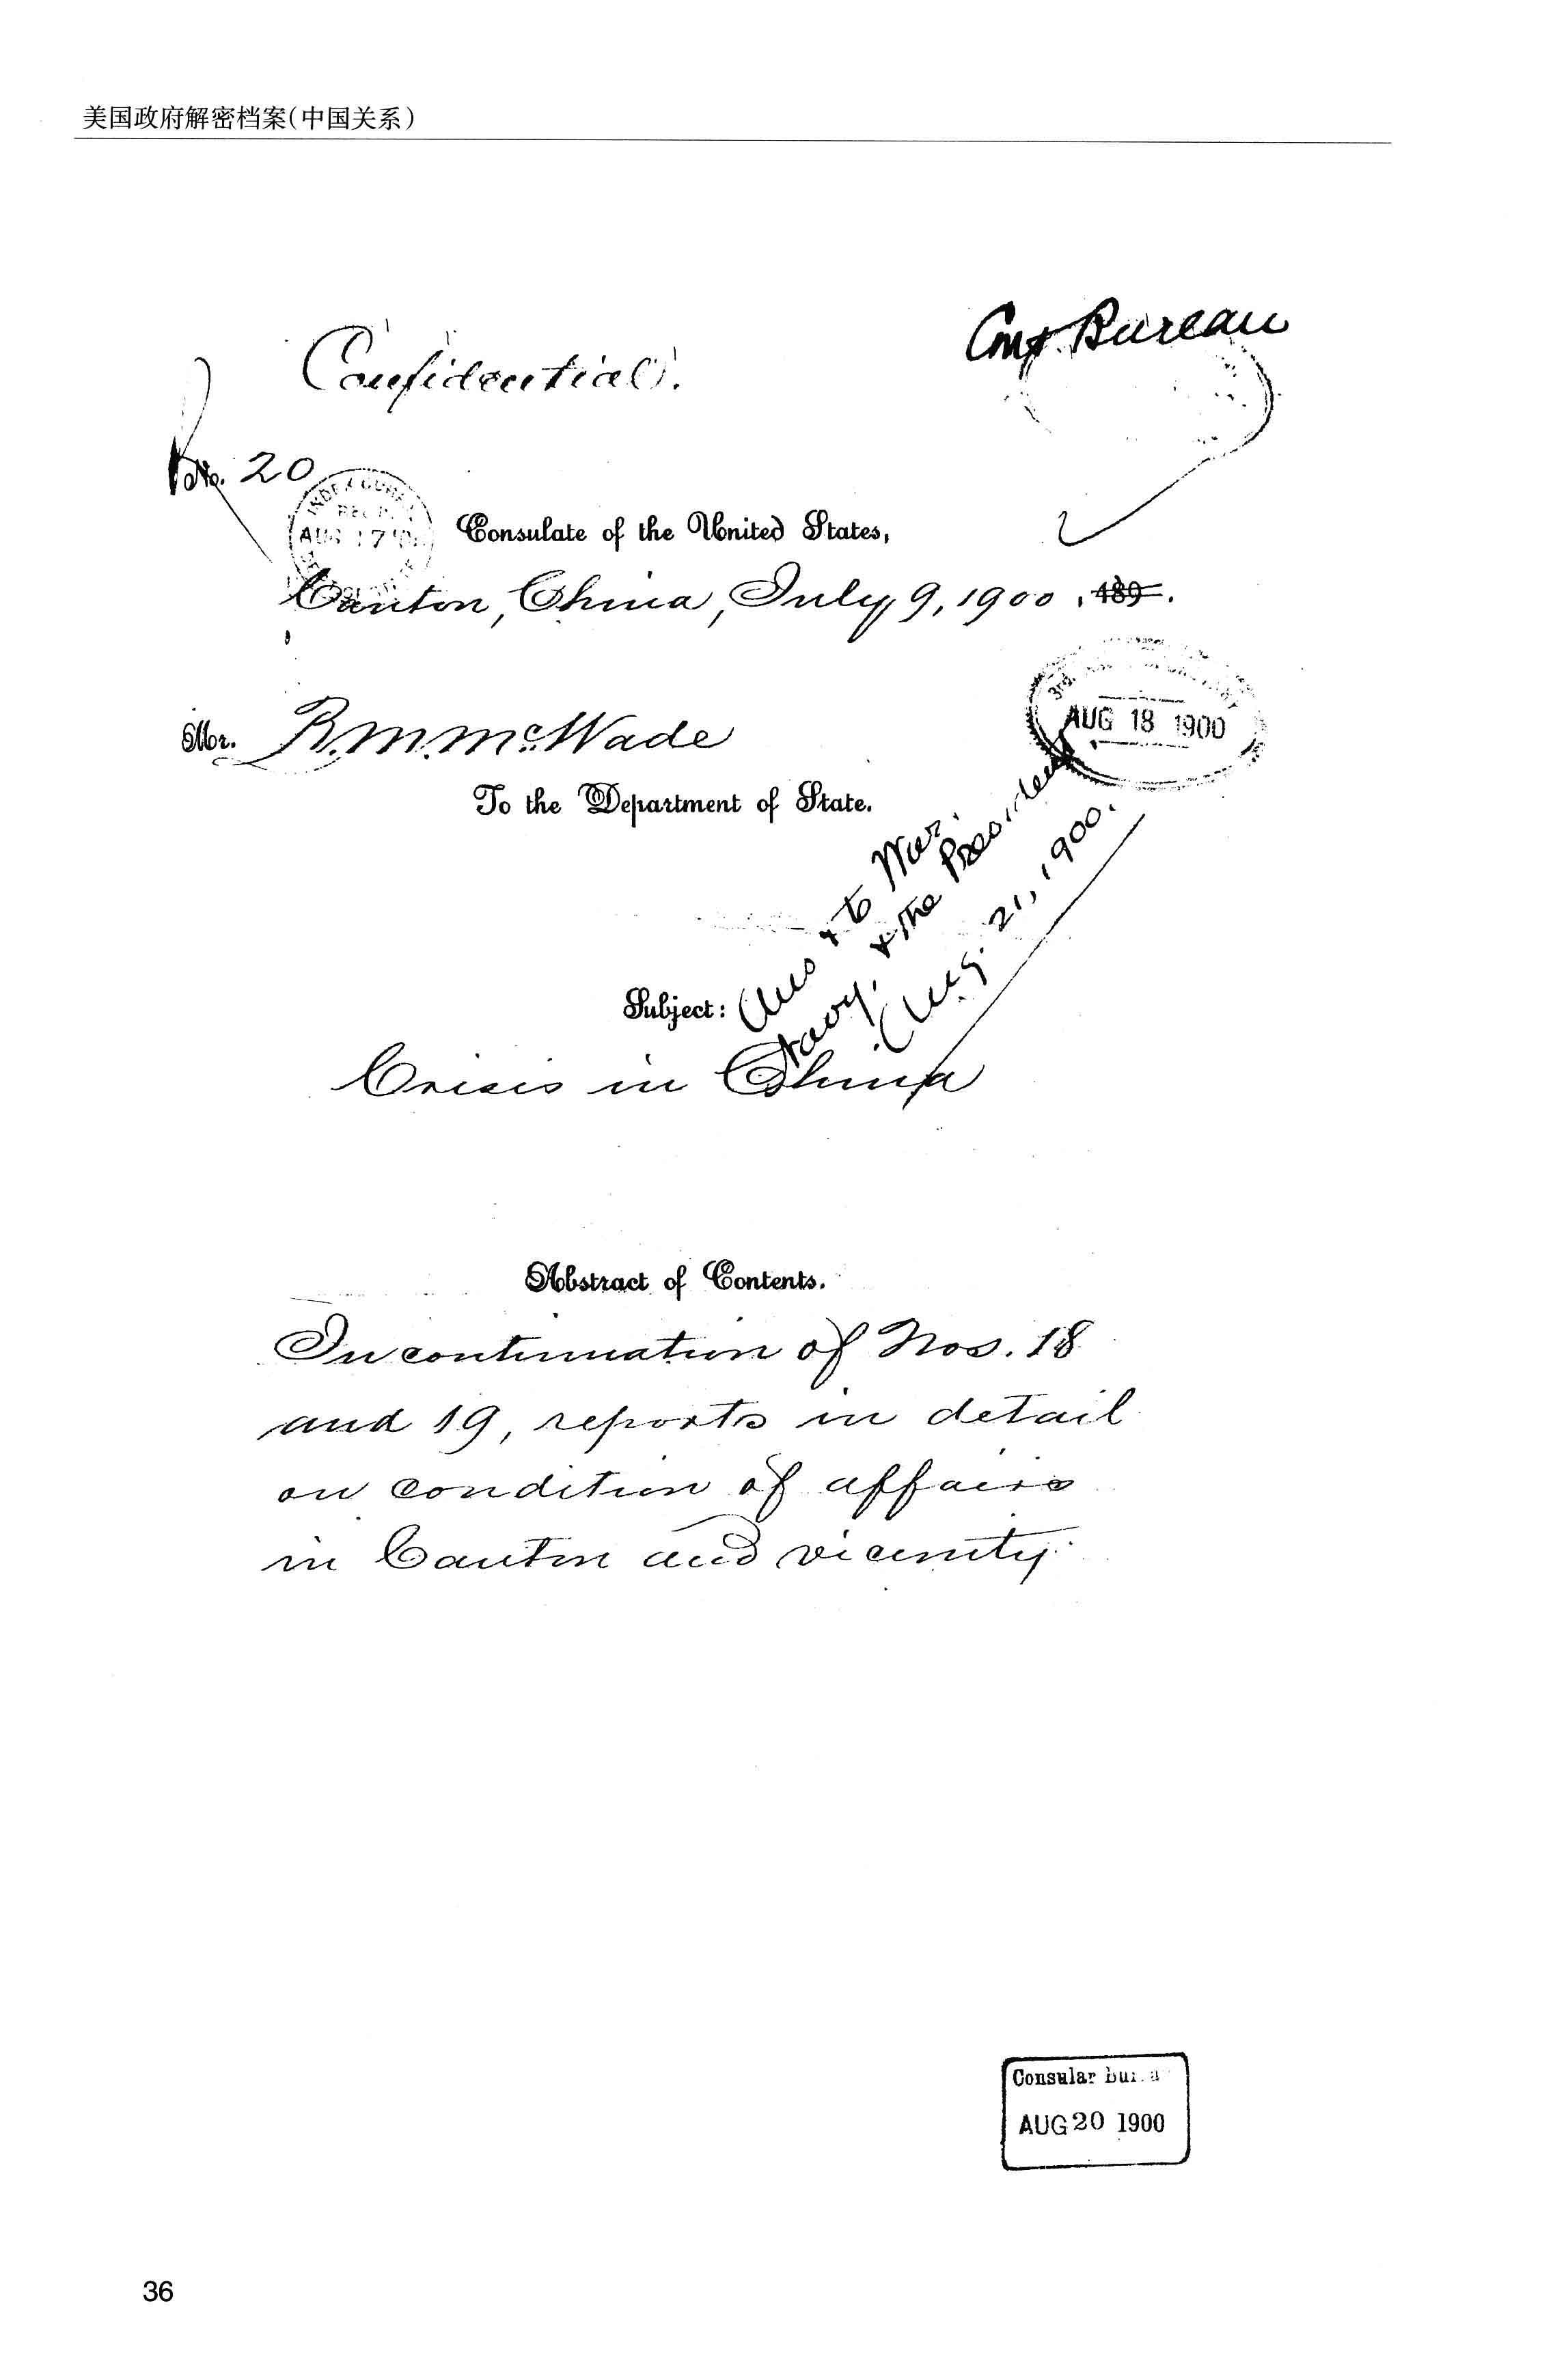 美国政府解密档案(中国关系)
Confidential.
Bureau
No. 20
AUG 17
Consulate of the United States,
Canton, China, July 9, 1900, 189 .
Mr. R. M. McWade
AUG 18 1900
To the Department of State.
Ans & to War,
Navy, & the President
Aug. 21, 1900.
Subject:
Crisis in China
Abstract of Contents.
In continuation of Nos. 18
and 19, reports in detail
on condition of affairs
in Canton and vicinity.
Consular
AUG 20 1900
36